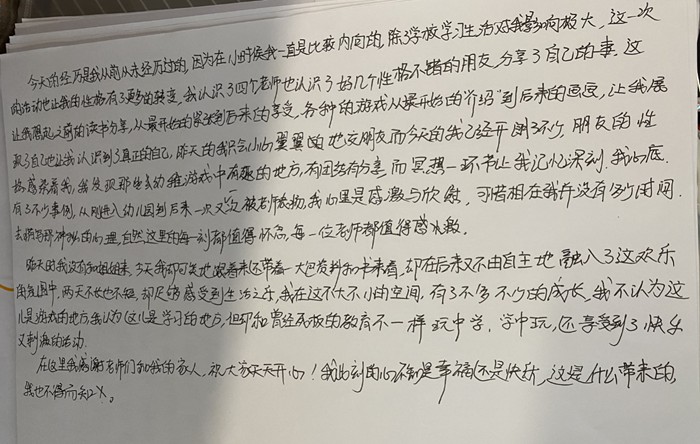 今天的经历是我从前从未经历过的,因为在小时候我一直是比较内向的,除学校学习生活对我影响极大,这一次
的活动也让我的性格有了更多的转变,我认识了四个老师也认识了好几个性格不错的朋友,分享了自己的事.这
让我想起之前的读书分享,从最开始的紧张到后来的享受,各种的游戏从最开始的"介绍"到后来的画画,让我展
现了自己也让我认识到了真正的自己,昨天的我只会小心翼翼的地交朋友而今天的我已经开朗了不少,朋友的性
格感染着我,我发现那些幼稚游戏中有趣的地方,有团结有分享而冥想一环节让我记忆深刻.我心底
有了不少事例,从刚进入幼儿园到后来一次又一次被老师鼓励,我心里是感激与欣慰,可惜相在我并没有多少时间.
去描写那神秘的心理,自然这里的每一刻都值得怀念,每一位老师都值得感激.
昨天的我没有和姐姐来,今天我却可笑地跟着来还带着一大包资料和书来看,却在后来又不由自主地融入了这欢乐
的氛围中,两天不长也不短,却足够感受到生活之乐,我在这不大不小的空间,有了不多不少的成长,我不认为这
儿是游戏的地方,我认为这儿是学习的地方,但却和曾经死板的教育不一样玩中学,学中玩,还享受到了快乐
又刺激的活动.
在这里我感谢老师们和我的家人,祝大家天天开心!我此刻的心不知是幸福还是快乐,这是什么带来的,
我也不得而知以.